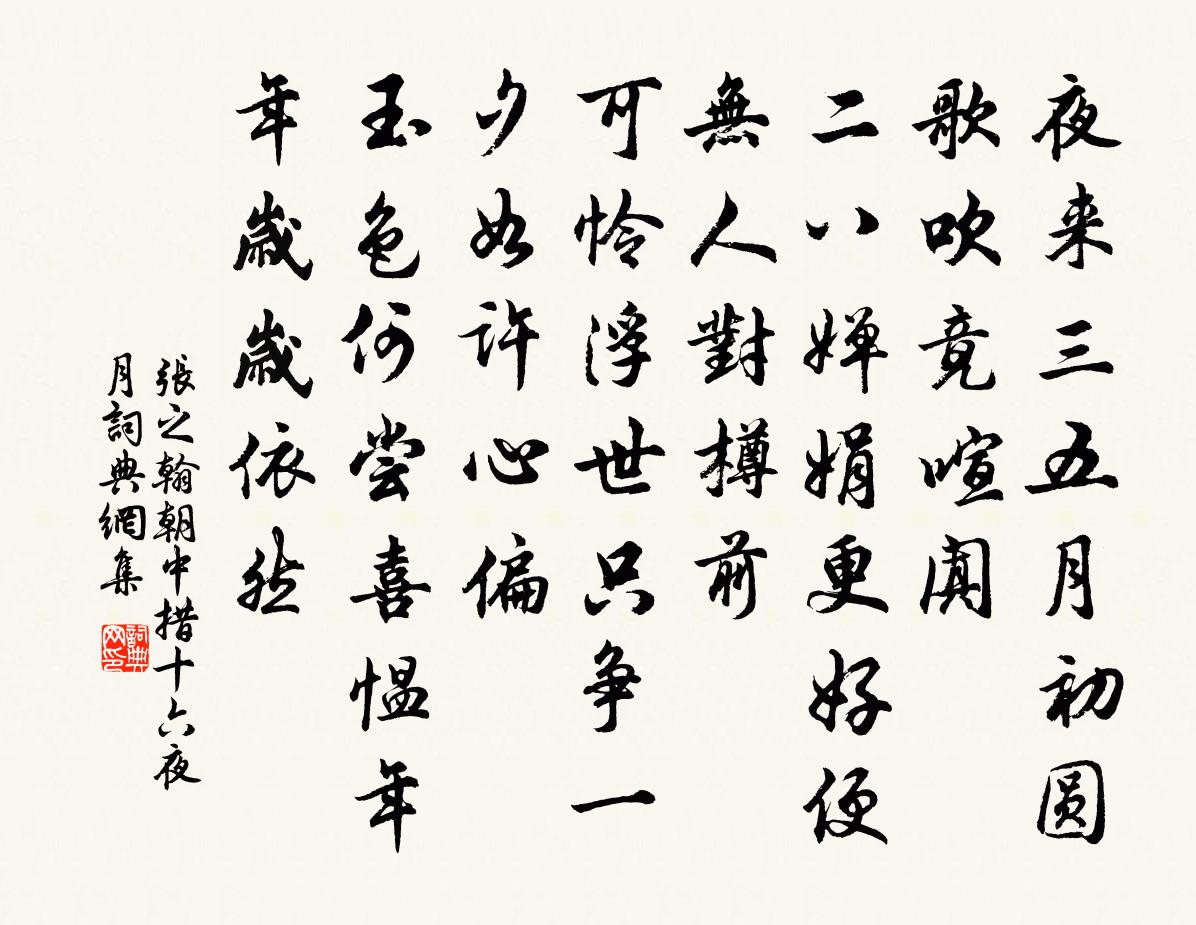 夜来三五月初圓
歌吹竟喧闐
二八嬋娟更好便
無人對樽前
可怜浮世只争一
夕如許心偏
玉色何尝喜愠年
年歲歲依然
張之翰朝中措十六夜
月詞典網集
詞典网印